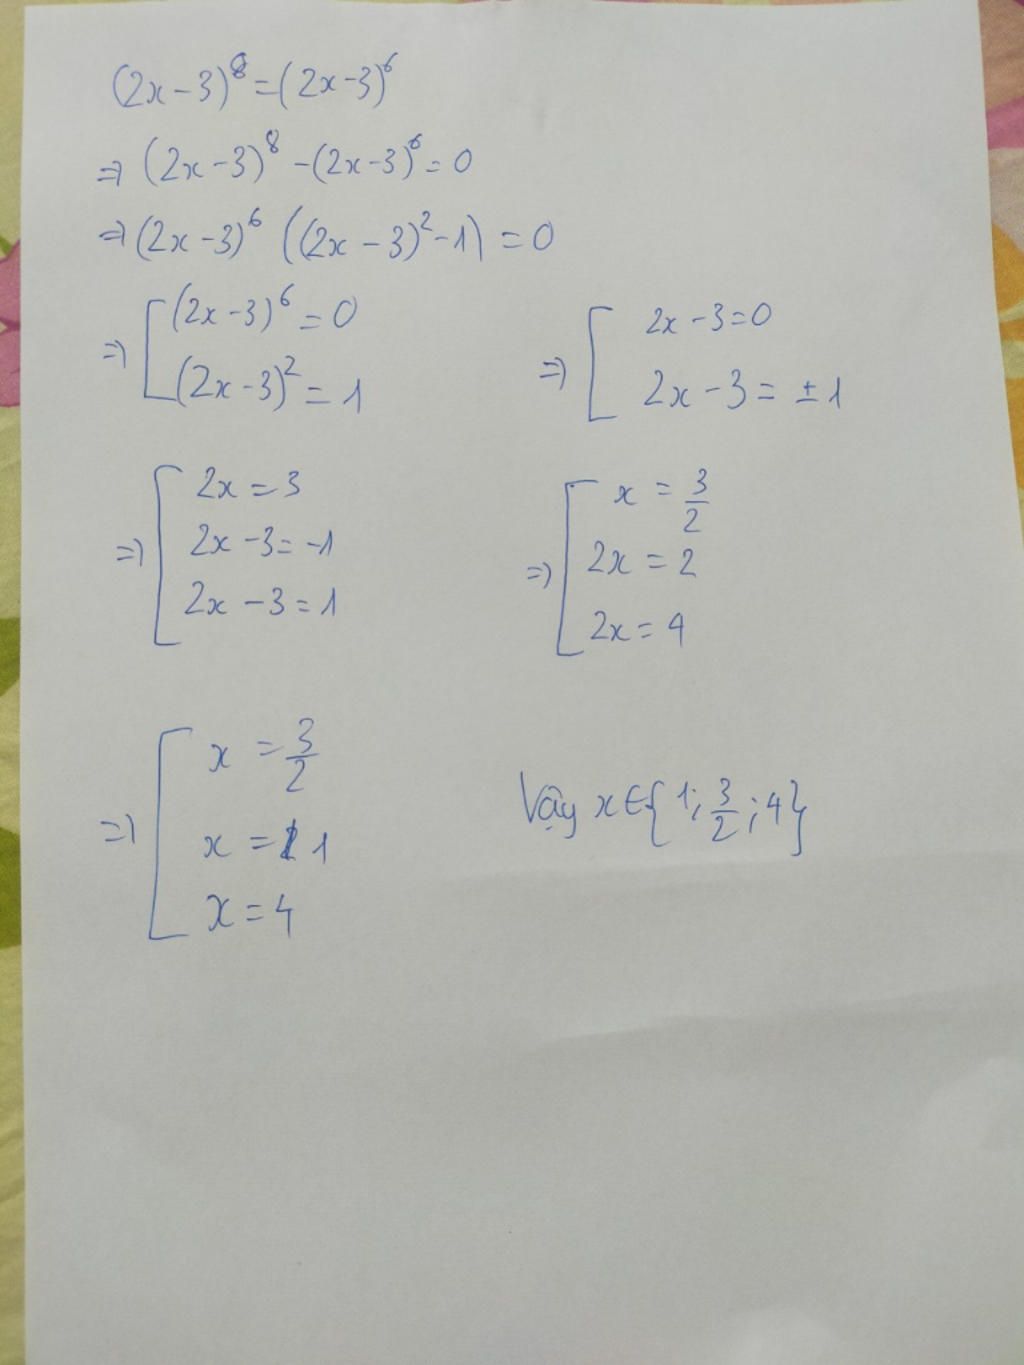 (2x-3)⁸=(2x-3)⁶
⇒ (2x-3)⁸ -(2x-3)⁶=0
⇒ (2x-3)⁶ ((2x-3)²-1) = 0
⇒ [ (2x-3)⁶ = 0
(2x-3)² = 1
⇒ [ 2x-3=0
2x-3= ±1
⇒ [ 2x = 3
2x-3= -1
2x-3=1
⇒ [ x = 3/2
2x = 2
2x = 4
⇒ [ x = 3/2
x = 1
x = 4
Vậy x∈{1; 3/2; 4}